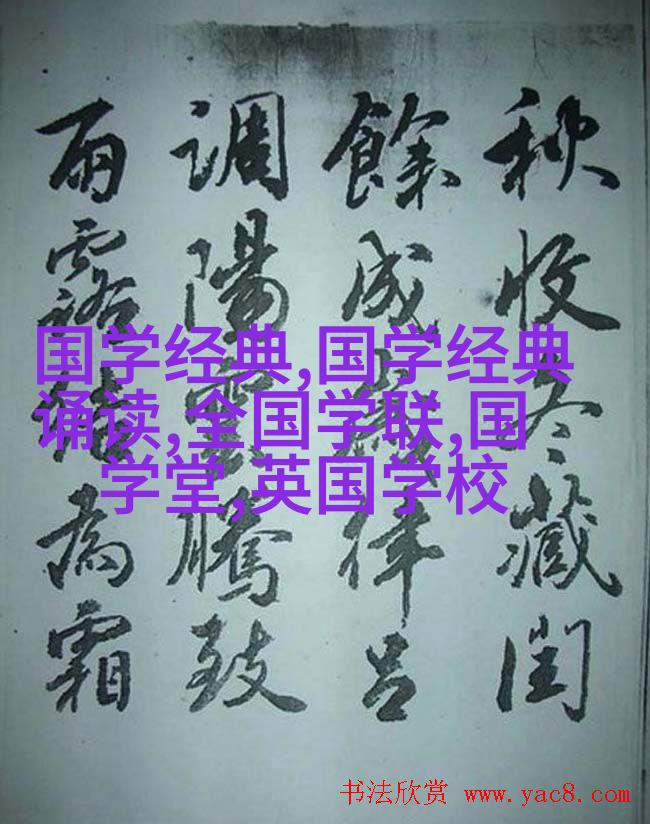 秋收冬藏閏
餘成律呂
調陽騰致
雨露為霜
国学经典,国学经典
诵读,全国学联,国
学堂,英国学校
书法欣赏 www.yac8.com